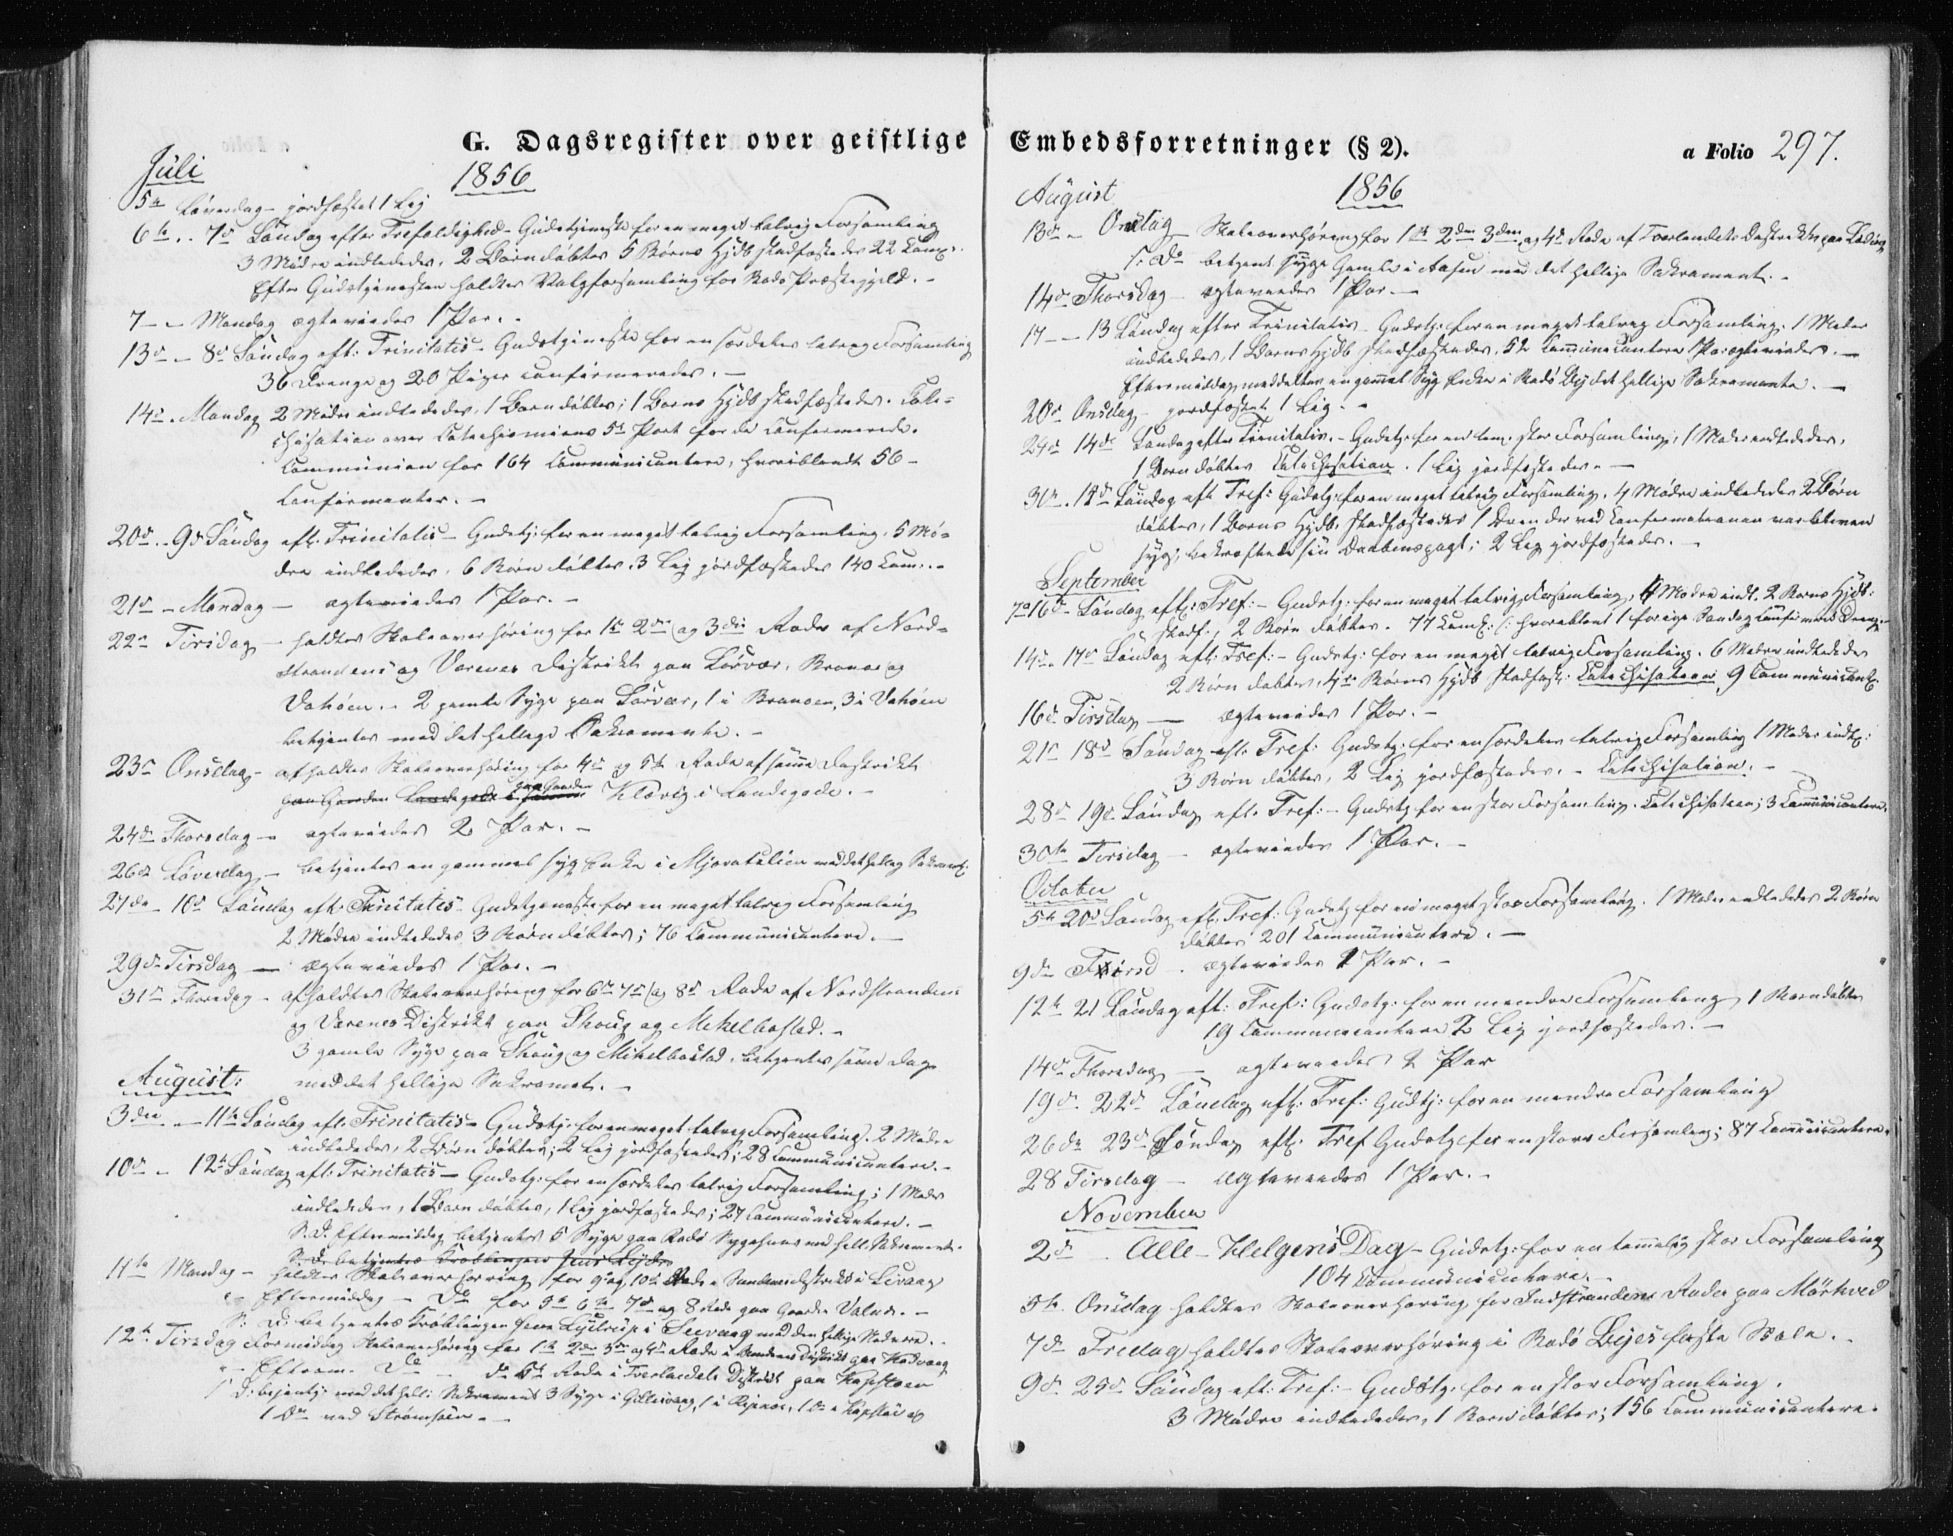 G. Dagsregister over geistlige
Juli
1856
5te Löverdag - jordfæstet 1 Lig
6te - 7de Söndag efter Trefoldighed - Gudstjeneste for en meget talrig Forsamling
3 Mödre indlededes, 2 Börn döbtes 5 Börns Hjdb stadfæstedes 22 Com:
Efter Gudstjenesten holdtes Valgforsamling for Bodö Præstegjeld. -
7 - - Mandag ægteviedes 1 Par. -
13de - 8de Söndag eft: Trinitatis - Gudstjeneste for en særdeles talrig Forsamling
36 Drenge og 20 Piger confirmeredes. -
14de - Mandag 2 Mödre indlededes, 1 Barn döbtes; 1 Barns Hjdb stadfæstedes. Cate-
chisation over Catechismens 5te Part for de Confirmerede.
Communion for 164 Communicantere, hvoriblandt 56
Confirmanter. -
20de - 9de Söndag eft: Trinitatis - Gudstj: for en meget talrig Forsamling, 5 Mö-
dre indlededes, 6 Börn döbtes, 3 Lig jordfæstedes 140 Com: -
21de - Mandag - ægteviedes 1 Par. -
22de Tirsdag - holdtes Skoleoverhöring for 1ste 2den og 3die Rode af Nord-
strandens og Værenes Distrikt paa
- 2 gamle Syge paa 1 i 3 i
betjentes med det hellige Sakramente. -
23de Onsdag - afholdtes Skoleoverhöring for 4de og 5te Rode af samme Distrikt
paa Gaarden Klævig i Landegode. -
24de Thorsdag - ægteviedes 2 Par. -
26de Löverdag - betjentes en gammel syg Enke i med det hellig Sakram:
27de - 10de Söndag eft: Trinitatis - Gudstjeneste for en meget talrig Forsamling
2 Mödre indlededes, 3 Börn döbtes; 76 Communicantere. -
29de Tirsdag - ægteviedes 1 Par. -
31te Thorsdag - afholdtes Skoleoverhöring for 6te 7de og 8de Rode af Nordstrandens
og Værenes Distrikt paa Skoug og Mikelbostad. -
3 gamle Syge paa Skoug og Mikelbostad betjentes samme Dag
med det hellige Sakramet. -
August:
3die - 11te Söndag eft: Trinitatis - Gudstj: for en meget talrig Forsamling. 2 Mödre
indlededes, 2 Börn döbtes; 2 Lig jordfæstedes; 28 Communicantere. -
10de - 12te Söndag eft: Trinitatis - Gudstj: for en særdeles talrig Forsamling; 1 Moder
indlededes, 1 Barn döbtes, 1 Lig jordfæstedes; 27 Communicantere. -
S. D. Eftermiddag betjentes 5 Syge paa Bodö Sygehuus med hell. Sakramente.
11te Mandag - holdtes Skoleoverhöring for 9de og 10de Rode
Eftermiddag - Do for 5te 6te 7de og 8 Rode paa Gaarden
S: D: betjentes med den hellige Nadvere. -
12te Tirsdag Formiddag Skoleoverhöring for 1ste 2den 3die og 4de Rode i Distrikt paa
Efterm. Do - - 5te Rode i Tverlandets Distrikt paa
D: betjentes med det hell: Sakrament 3 Syge i
1 Do ved Strömsöen. -
Embedsforretninger (§ 2).
a Folio 297.
August
1856
13de - Onsdag - Skoleoverhöring for 1ste 2den 3die og 4de Rode af Tverlandets Distrikt paa
S: Do betjent syge Gamle i Aasen med det hellige Sakrament. -
14de Thorsdag - ægteviedes 1 Par -
17 - - 13 Söndag efter Trinitatis - Gudstj: for en meget talrig Forsamling. 1 Moder
indlededes, 1 Barns Hjdb stadfæstedes, 52 Communicantere 1 Par ægteviedes. -
Eftermiddag meddeltes en gammel Syg Enke i Bodö By det hellige Sakramente. -
20de Onsdag - jordfæstet 1 Lig. -
24de 14de Söndag efter Trinitatis. - Gudstj: for en tem. stor Forsamling, 1 Moder indlededes,
1 Barn döbtes Catechisation. 1 Lig jordfæstedes. -
30te - 14de Söndag eft: Tref: Gudstj: for en meget talrig Forsamling. 4 Mödre indlededes 2 Börn
döbtes, 1 Barns Hjdb. stadfæstedes 1 Dreng der ved Confirmationen var bleven
syg, bekræftede sin Daabenspagt; 2 Lig jordfæstedes. -
September
7de 16de Söndag eft: Tref: - Gudstj: for en meget talrig Forsamling, 4 Mödre indl. 2 Börns Hjdb:
stadf:, 2 Börn döbtes. 77 Com: (: hvoriblant 1 forrige Söndag Confirmeret Dreng -
14de 17de Söndag eft: Tref: - Gudstj: for en meget talrig Forsamling. 6 Mödre indlededes
2 Börn döbtes, Börns Hjdb. stadfæst: Catechisation, 9 Communicant:
16de Tirsdag - ægteviedes 1 Par. -
21de 18de Söndag eft: Tref: Gudstj: for en særdeles talrig Forsamling 1 Moder indl:
3 Börn döbtes, 2 Lig jordfæstedes. - Catechisation. -
28de 19de Söndag eft: Tref: - Gudstj for en stor Forsamling. Catechisation; 3 Communicantere.
30te Tirsdag - ægteviedes 1 Par. -
October
5te 20de Söndag eft: Tref: Gudstj for en meget stor Forsamling. 1 Moder indlededes 2 Börn
döbtes 201 Communicantere. -
9de Torsd - ægteviedes 1 Par. -
12te 21 Söndag eft: Tref: Gudstj: for en mindre Forsamling, 1 Barn döbtes
19 Communicantere 2 Lig jordfæstedes. -
14de Thorsdag - ægteviedes 2 Par
19de. 22de Söndag eft: Tref: Gudstj: for en mindre Forsamling
26de 23de Söndag eft: Tref Gudstj for en større Forsamling; 87 Communicantere.
28 Tirsdag - ægteviedes 1 Par. -
November
2de - Alle-Helgens Dag - Gudstj: for en temmelig stor Forsamling
104 Communicantere. -
5te Onsdag holdtes Skoleoverhöring for Indstrandens Roder paa Mörkved
7de Fredag holdtes Skoleoverhöring i Bodö Byes faste Skole. -
9de 25de Söndag eft: Tref: - Gudstj: for en stor Forsamling.
3 Mödre indlededes, 1 Barn döbtes; 156 Communicantere.